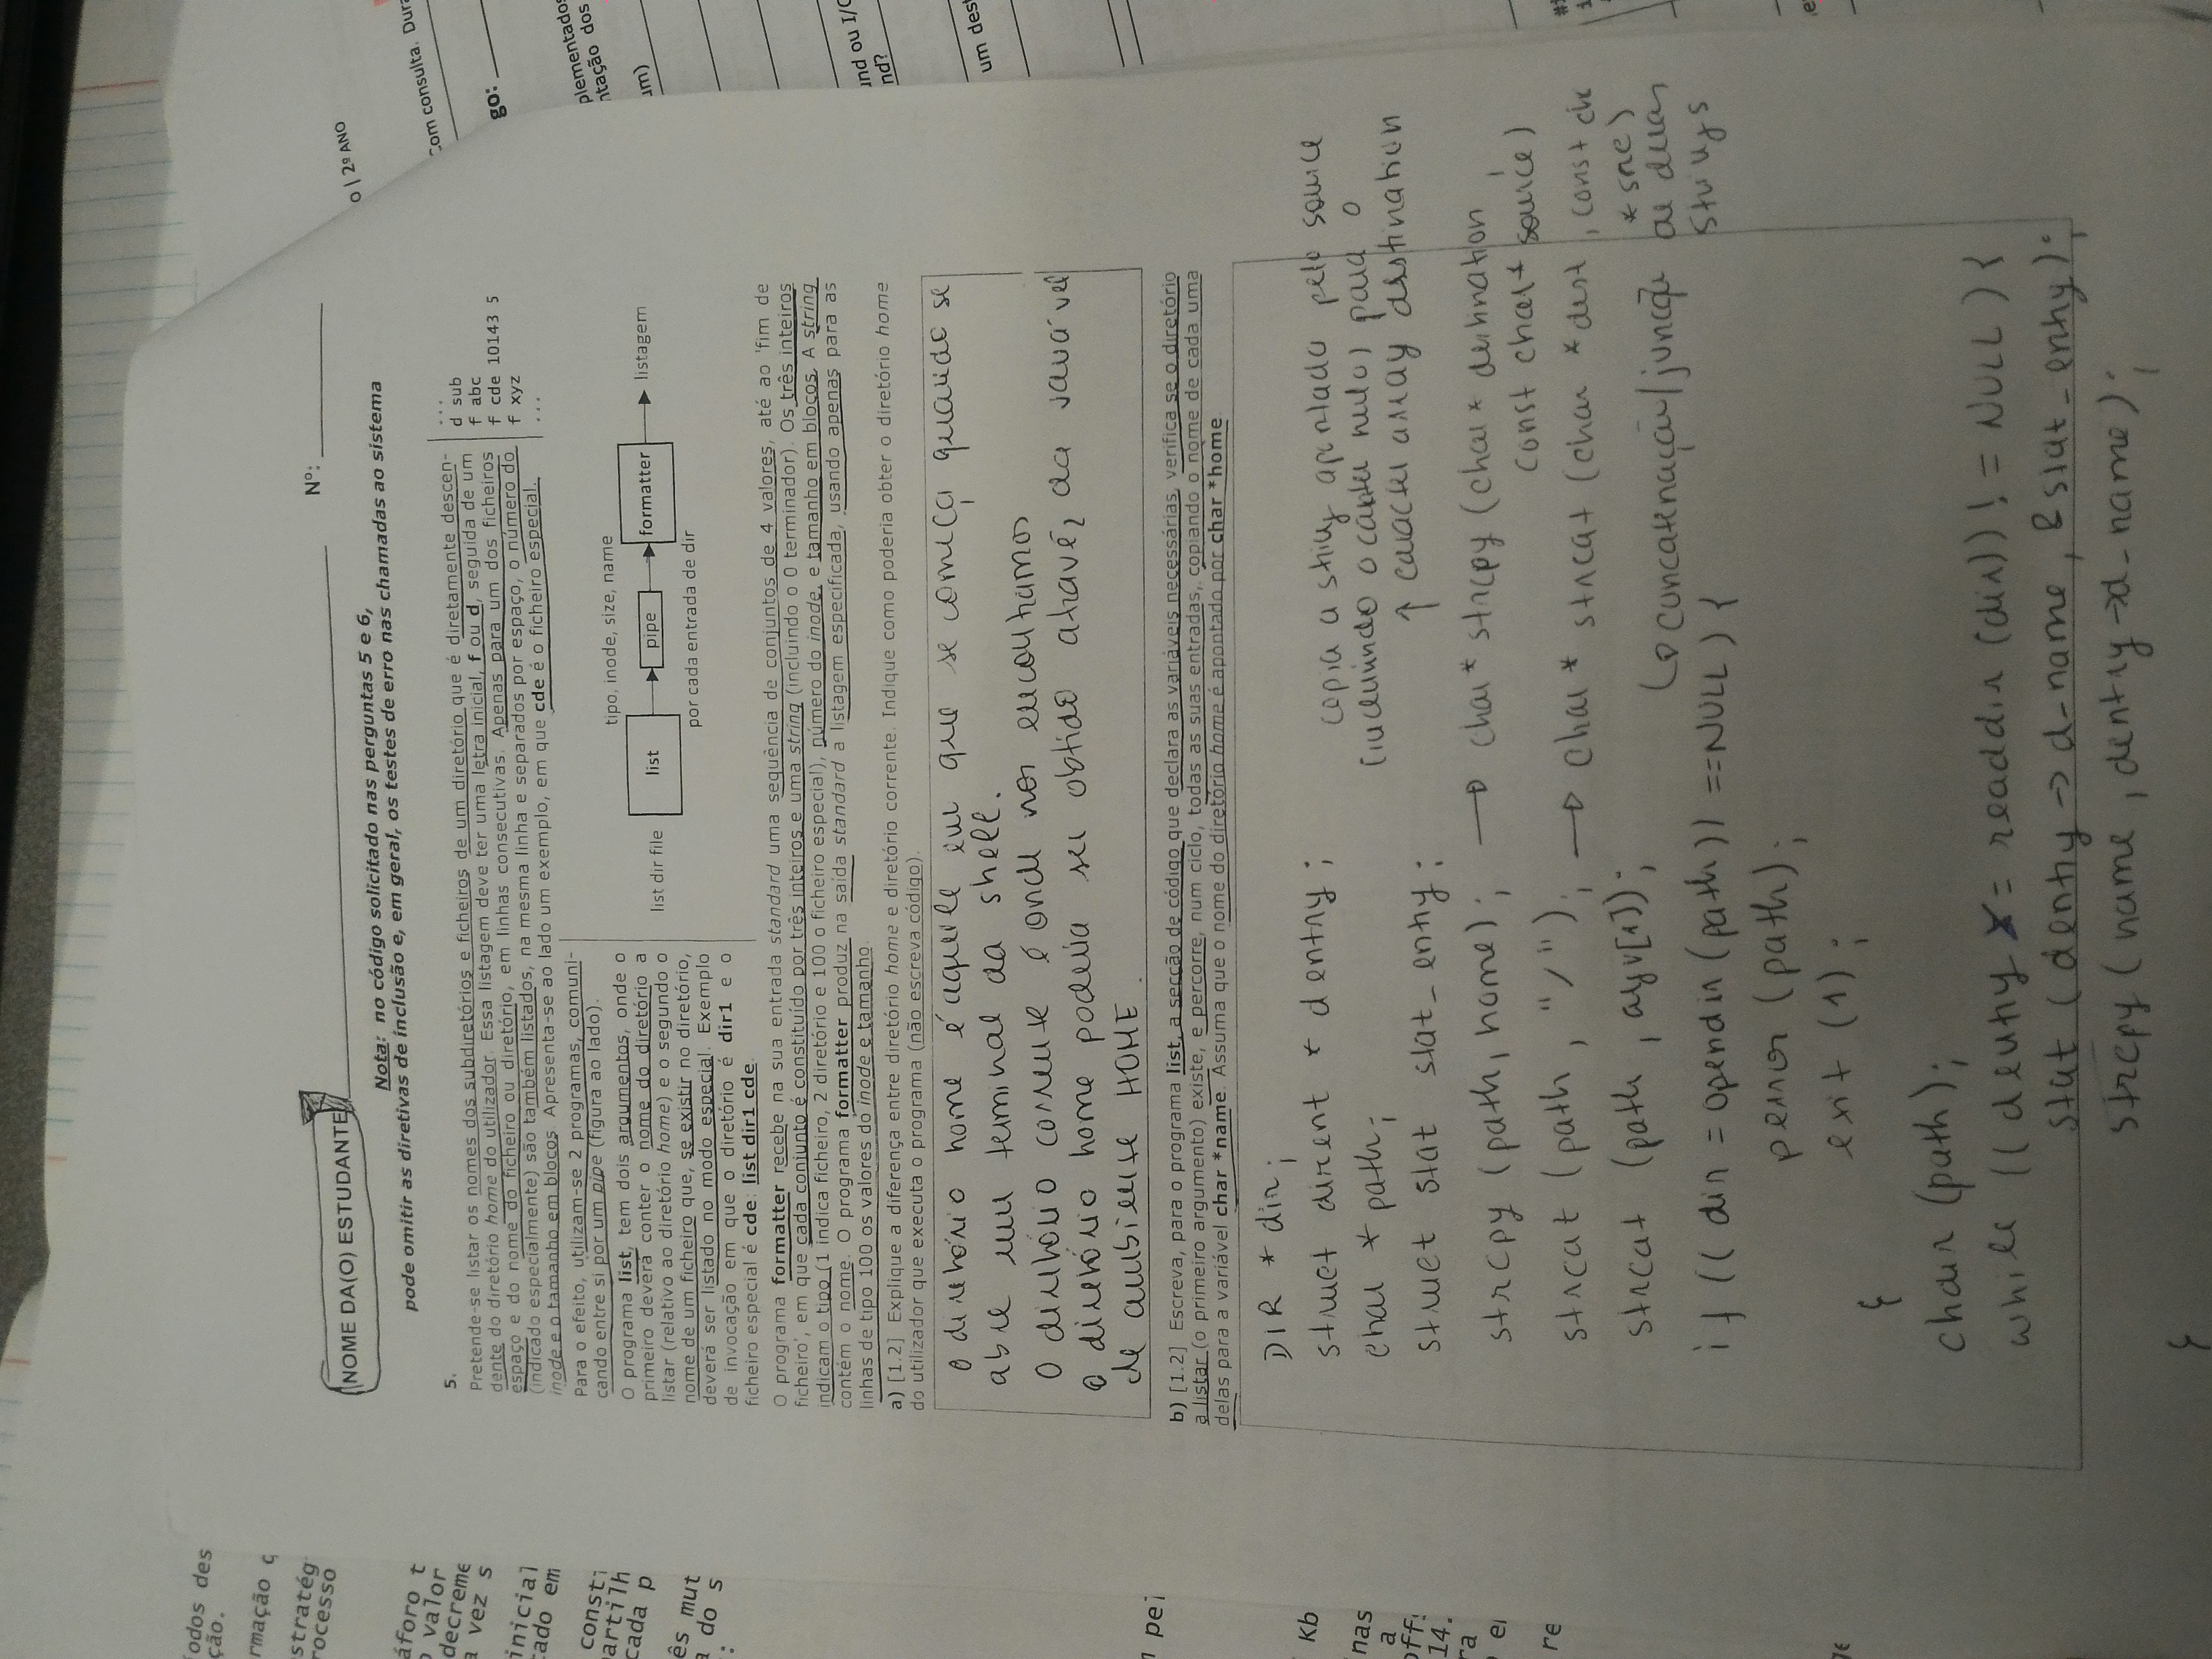 NOME DA(O) ESTUDANTE Nº:
Nota: no código solicitado nas perguntas 5 e 6,
pode omitir as diretivas de inclusão e, em geral, os testes de erro nas chamadas ao sistema
5.
Pretende-se listar os nomes dos subdiretórios e ficheiros de um diretório que é diretamente descen-
dente do diretório home do utilizador. Essa listagem deve ter uma letra inicial, f ou d, seguida de um
espaço e do nome do ficheiro ou diretório, em linhas consecutivas. Apenas para um dos ficheiros
(indicado especialmente) são também listados, na mesma linha e separados por espaço, o número do
inode e o tamanho em blocos. Apresenta-se ao lado um exemplo, em que cde é o ficheiro especial.
...
d sub
f abc
f cde 10143 5
f xyz
...
Para o efeito, utilizam-se 2 programas, comuni-
cando entre si por um pipe (figura ao lado).
O programa list, tem dois argumentos, onde o
primeiro deverá conter o nome do diretório a
listar (relativo ao diretório home) e o segundo o
nome de um ficheiro que, se existir no diretório,
deverá ser listado no modo especial. Exemplo
de invocação em que o diretório é dir1 e o
ficheiro especial é cde: list dir1 cde.
tipo, inode, size, name
list dir file
list
pipe
formatter
listagem
por cada entrada de dir
O programa formatter recebe na sua entrada standard uma sequência de conjuntos de 4 valores, até ao 'fim de
ficheiro', em que cada conjunto é constituído por três inteiros e uma string (incluindo o 0 terminador). Os três inteiros
indicam o tipo (1 indica ficheiro, 2 diretório e 100 o ficheiro especial), número do inode, e tamanho em blocos. A string
contém o nome. O programa formatter produz na saída standard a listagem especificada, usando apenas para as
linhas de tipo 100 os valores do inode e tamanho.
a) [1.2] Explique a diferença entre diretório home e diretório corrente. Indique como poderia obter o diretório home
do utilizador que executa o programa (não escreva código).
O diretório home é aquele em que se começa quando se
abre um terminal da shell.
O diretório corrente é onde nos encontramos
O diretório home poderia ser obtido através da variável
de ambiente HOME.
b) [1.2] Escreva, para o programa list, a secção de código que declara as variáveis necessárias, verifica se o diretório
a listar (o primeiro argumento) existe, e percorre, num ciclo, todas as suas entradas, copiando o nome de cada uma
delas para a variável char *name. Assuma que o nome do diretório home é apontado por char *home.
DIR * dir;
struct dirent * dentry;
char * path;
struct stat stat_entry;
copia a string apontado pelo source
(incluindo o caráter nulo) para o
↑ caracter array destination
strcpy (path, home); → char* strcpy (char* destination,
const char* source)
strcat (path, "/"); → char* strcat (char *dest, const ch
*src)
strcat (path, argv[1]);
↳ concatenação/junção de duas
strings
if ((dir = opendir(path)) ==NULL) {
perror (path);
exit (1);
}
chdir (path);
while ((dentry = readdir (dir)) != NULL) {
stat (dentry -> d_name, &stat_entry);
strcpy (name, dentry->d_name);
}
íodos des
ção.
rmação
stratég
rocesso
áforo t
valor
decreme
a vez s
inicial
cado em
const
partilh
cada p
ês mut
a do s
:
pel
Kb
nas
a
14.
ra
re
o | 2º ANO
Com consulta. Dura
go:
plementados
ntação dos
um)
und ou I/O
nd?
um dest